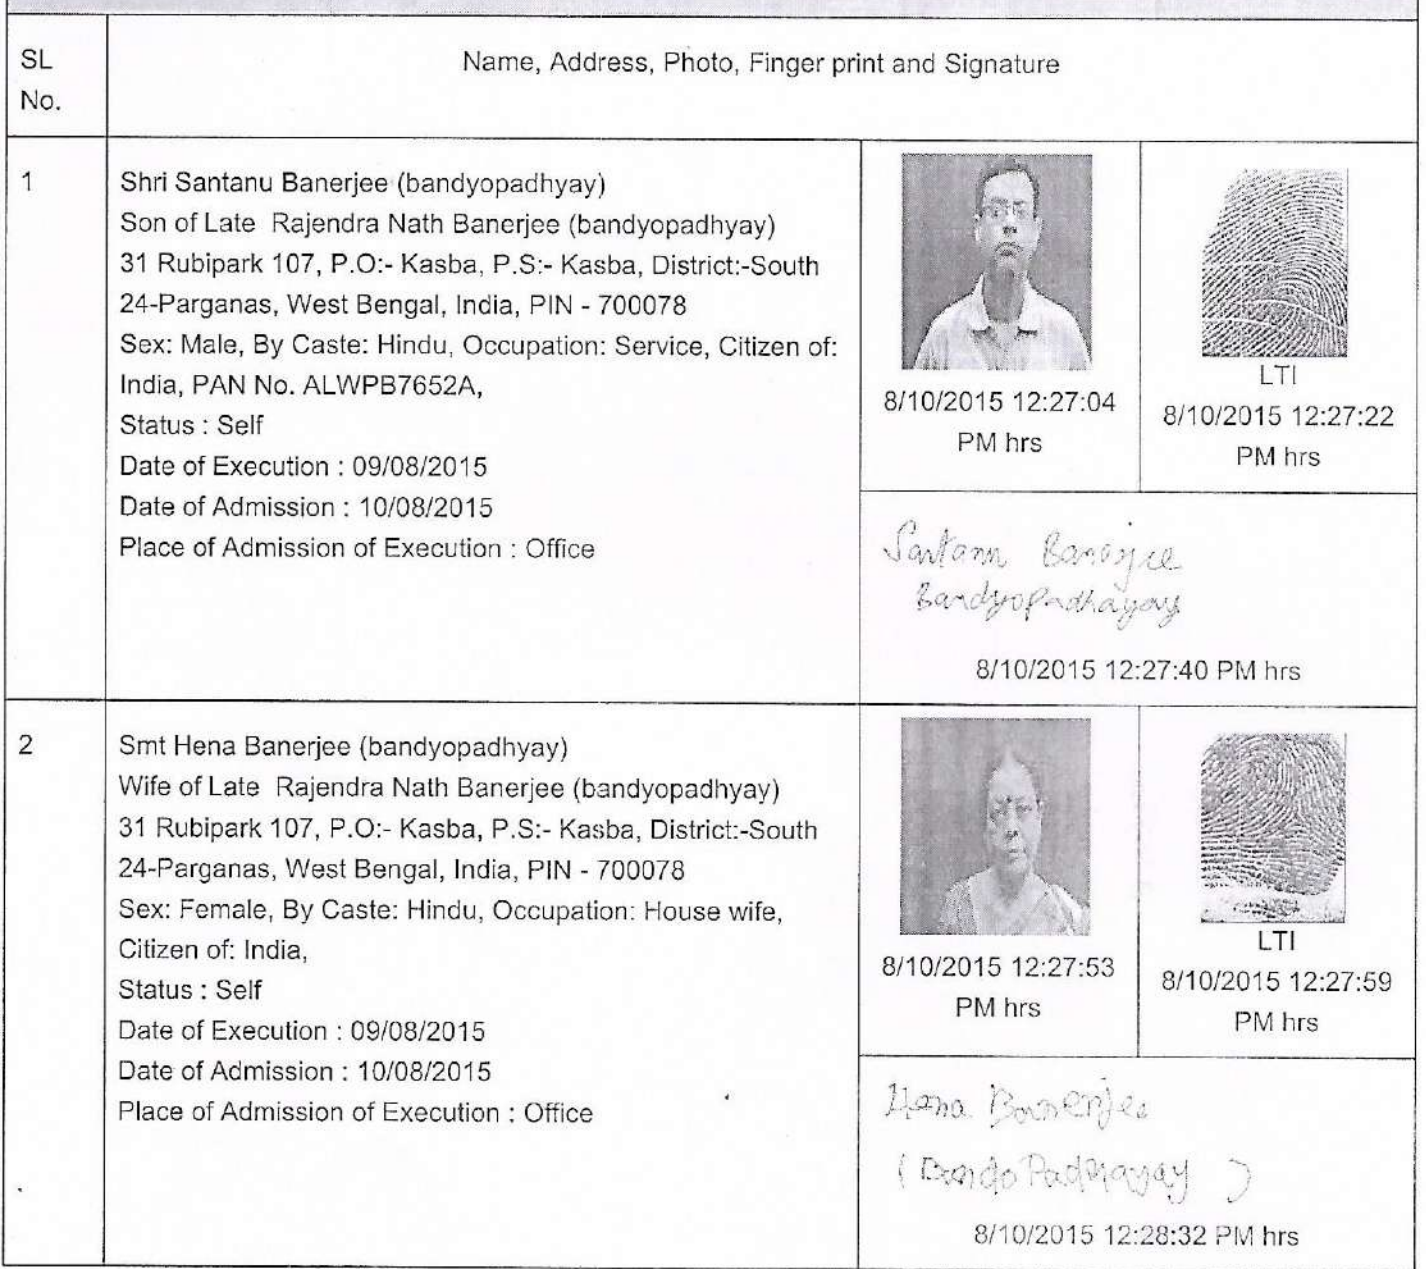 SL
No.
Name, Address, Photo, Finger print and Signature
1
Shri Santanu Banerjee (bandyopadhyay)
Son of Late Rajendra Nath Banerjee (bandyopadhyay)
31 Rubipark 107, P.O:- Kasba, P.S:- Kasba, District:-South
24-Parganas, West Bengal, India, PIN - 700078
Sex: Male, By Caste: Hindu, Occupation: Service, Citizen of:
India, PAN No. ALWPB7652A,
Status : Self
Date of Execution : 09/08/2015
Date of Admission : 10/08/2015
Place of Admission of Execution : Office
8/10/2015 12:27:04
PM hrs
LTI
8/10/2015 12:27:22
PM hrs
Santanu Banerjee
Bandyopadhayay
8/10/2015 12:27:40 PM hrs
2
Smt Hena Banerjee (bandyopadhyay)
Wife of Late Rajendra Nath Banerjee (bandyopadhyay)
31 Rubipark 107, P.O:- Kasba, P.S:- Kasba, District:-South
24-Parganas, West Bengal, India, PIN - 700078
Sex: Female, By Caste: Hindu, Occupation: House wife,
Citizen of: India,
Status : Self
Date of Execution : 09/08/2015
Date of Admission : 10/08/2015
Place of Admission of Execution : Office
8/10/2015 12:27:53
PM hrs
LTI
8/10/2015 12:27:59
PM hrs
Hena Banerjee
(BandoPadhayay)
8/10/2015 12:28:32 PM hrs